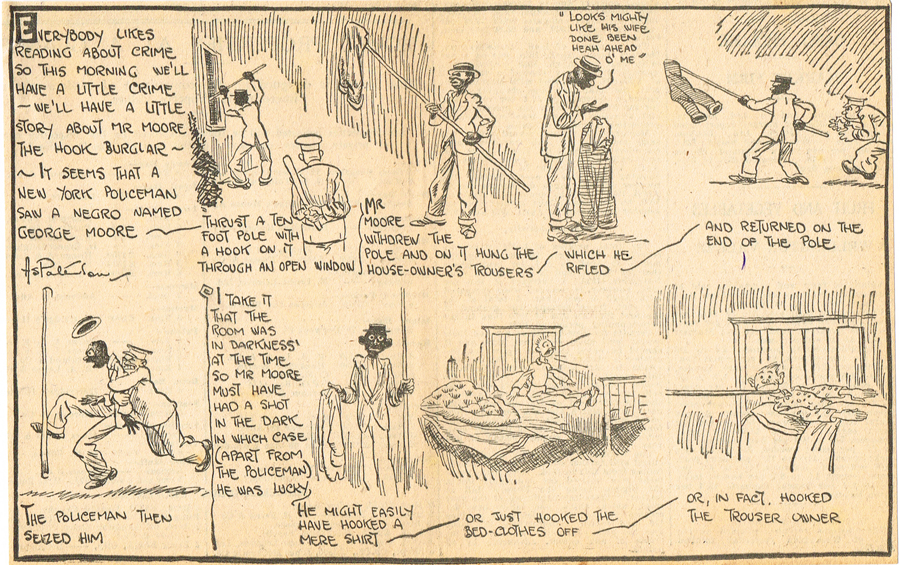 EVERYBODY LIKES
READING ABOUT CRIME
SO THIS MORNING WE'LL
HAVE A LITTLE CRIME
~ WE'LL HAVE A LITTLE
STORY ABOUT MR MOORE
THE HOOK BURGLAR ~
~ IT SEEMS THAT A
NEW YORK POLICEMAN
SAW A NEGRO NAMED
GEORGE MOORE
THRUST A TEN
FOOT POLE WITH
A HOOK ON IT
THROUGH AN OPEN WINDOW
MR
MOORE
WITHDREW THE
POLE AND ON IT HUNG THE
HOUSE-OWNER'S TROUSERS
"LOOKS MIGHTY
LIKE HIS WIFE
DONE BEEN
HEAH AHEAD
O' ME"
WHICH HE
RIFLED
AND RETURNED ON THE
END OF THE POLE
THE POLICEMAN THEN
SEIZED HIM
I TAKE IT
THAT THE
ROOM WAS
IN DARKNESS
AT THE TIME
SO MR MOORE
MUST HAVE
HAD A SHOT
IN THE DARK
IN WHICH CASE
(APART FROM
THE POLICEMAN)
HE WAS LUCKY
HE MIGHT EASILY
HAVE HOOKED A
MERE SHIRT
OR JUST HOOKED THE
BED-CLOTHES OFF
OR, IN FACT, HOOKED
THE TROUSER OWNER